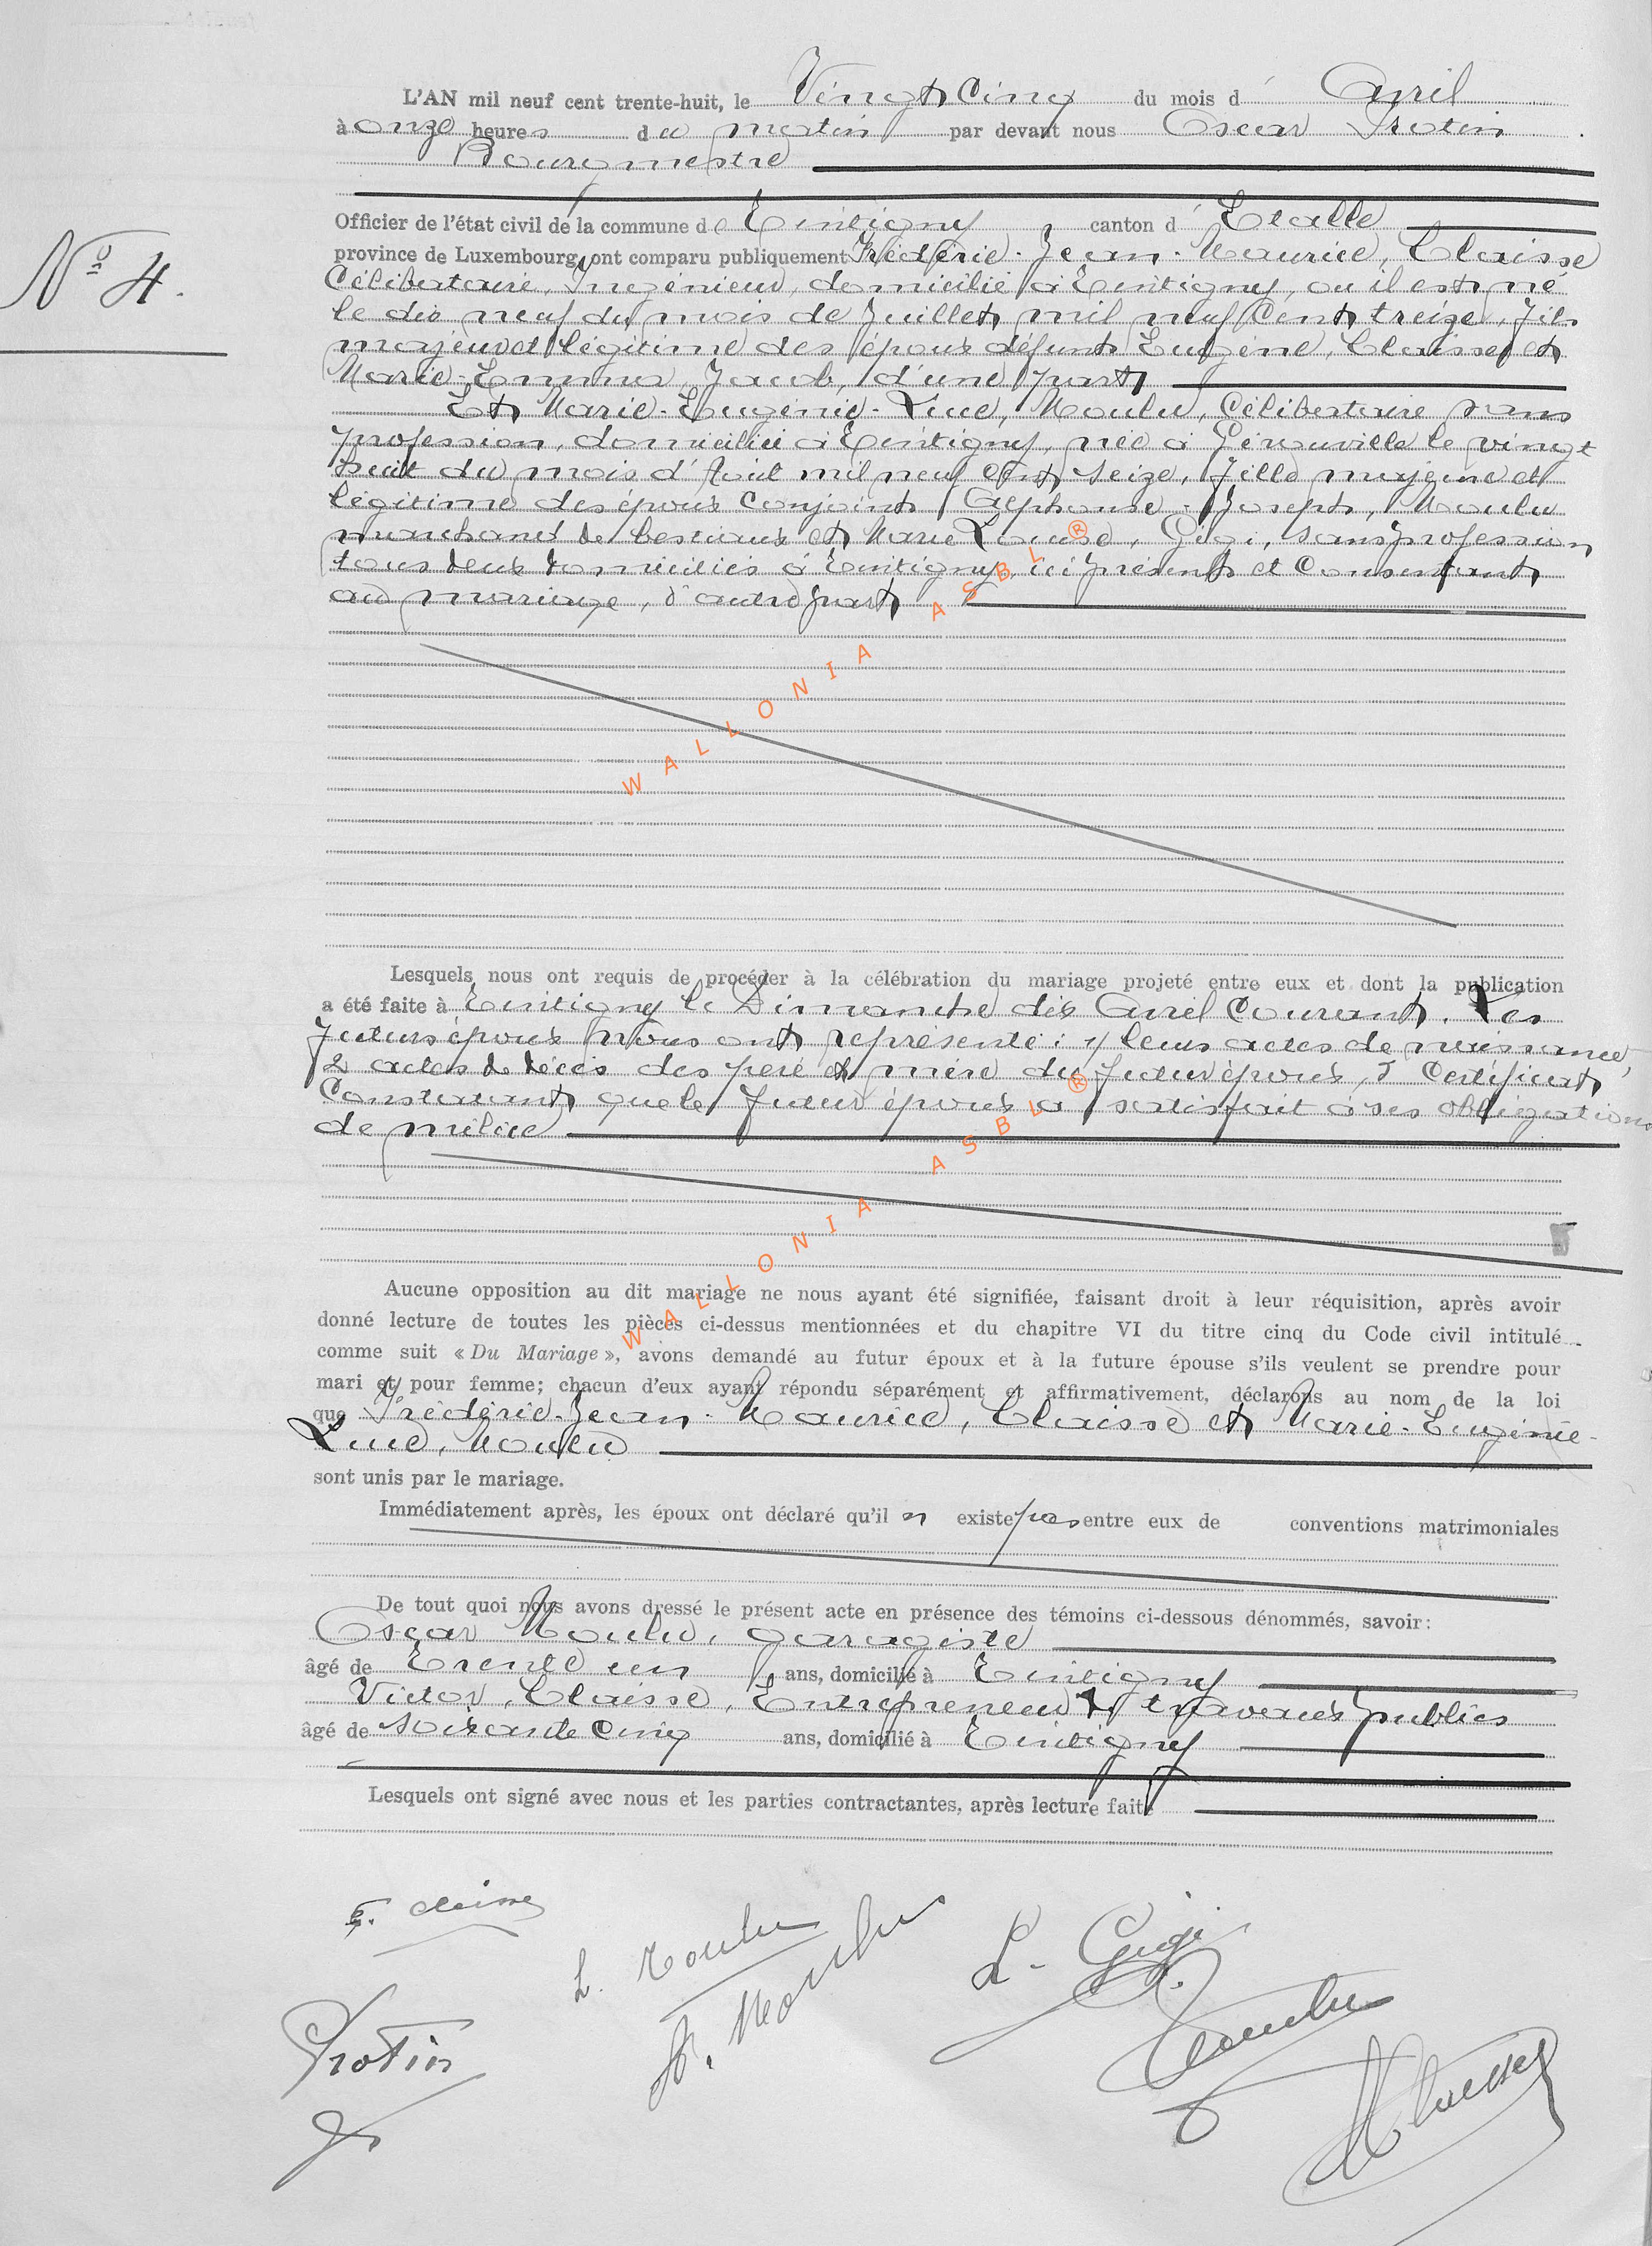 L'AN mil neuf cent trente-huit, le Vingt Cinq du mois d' Avril
à onze heures du matin par devant nous Oscar Protin
Bourgmestre
Officier de l'état civil de la commune de Tintigny canton d' Etalle
province de Luxembourg, ont comparu publiquement Frédéric-Jean-Maurice, Claisse
Célibataire, Ingénieur, domicilié à Tintigny, ou il est né
le dix neuf du mois de Juillet mil neuf Cent treize, fils
majeur et légitime des époux défunts Eugène, Claisse et
Marie-Emma, Jacob, d'une part
N° 4.
Et Marie-Eugénie-Luce, Moulu, Célibataire sans
profession, domiciliée à Tintigny, née à Gérouville le vingt
huit du mois d'Août mil neuf cent seize, fille majeure et
légitime des époux Conjoints Alphonse-Joseph, Moulu
marchand de bestiaux et Marie Louise, Gigi, sans profession
tous deux domiciliés à Tintigny, ici présents et Consentants
au mariage, d'autre part
WALLONIA ASBL ®
Lesquels nous ont requis de procéder à la célébration du mariage projeté entre eux et dont la publication
a été faite à Tintigny le Dimanche dix Avril Courant. Les
futurs époux nous ont représenté: 1/ leurs actes de naissance,
2 actes de décès des père et mère du futur époux, 3 Certificat
Constatant que le futur époux a satisfait à ses obligations
de milice
WALLONIA ASBL ®
Aucune opposition au dit mariage ne nous ayant été signifiée, faisant droit à leur réquisition, après avoir
donné lecture de toutes les pièces ci-dessus mentionnées et du chapitre VI du titre cinq du Code civil intitulé
comme suit « Du Mariage », avons demandé au futur époux et à la future épouse s'ils veulent se prendre pour
mari et pour femme; chacun d'eux ayant répondu séparément et affirmativement, déclarons au nom de la loi
que Frédéric-Jean-Maurice, Claisse et Marie-Eugénie-
Luce, Moulu
sont unis par le mariage.
Immédiatement après, les époux ont déclaré qu'il n existe pas entre eux de conventions matrimoniales
De tout quoi nous avons dressé le présent acte en présence des témoins ci-dessous dénommés, savoir:
Oscar Moulu, garagiste
âgé de Trente un ans, domicilié à Tintigny
Victor, Claisse, Entrepreneur de travaux publics
âgé de soixante Cinq ans, domicilié à Tintigny
Lesquels ont signé avec nous et les parties contractantes, après lecture faite
F. Claisse
L. Moulu
A. Moulu
L. Gigi
Moulu
Protin
Claisse